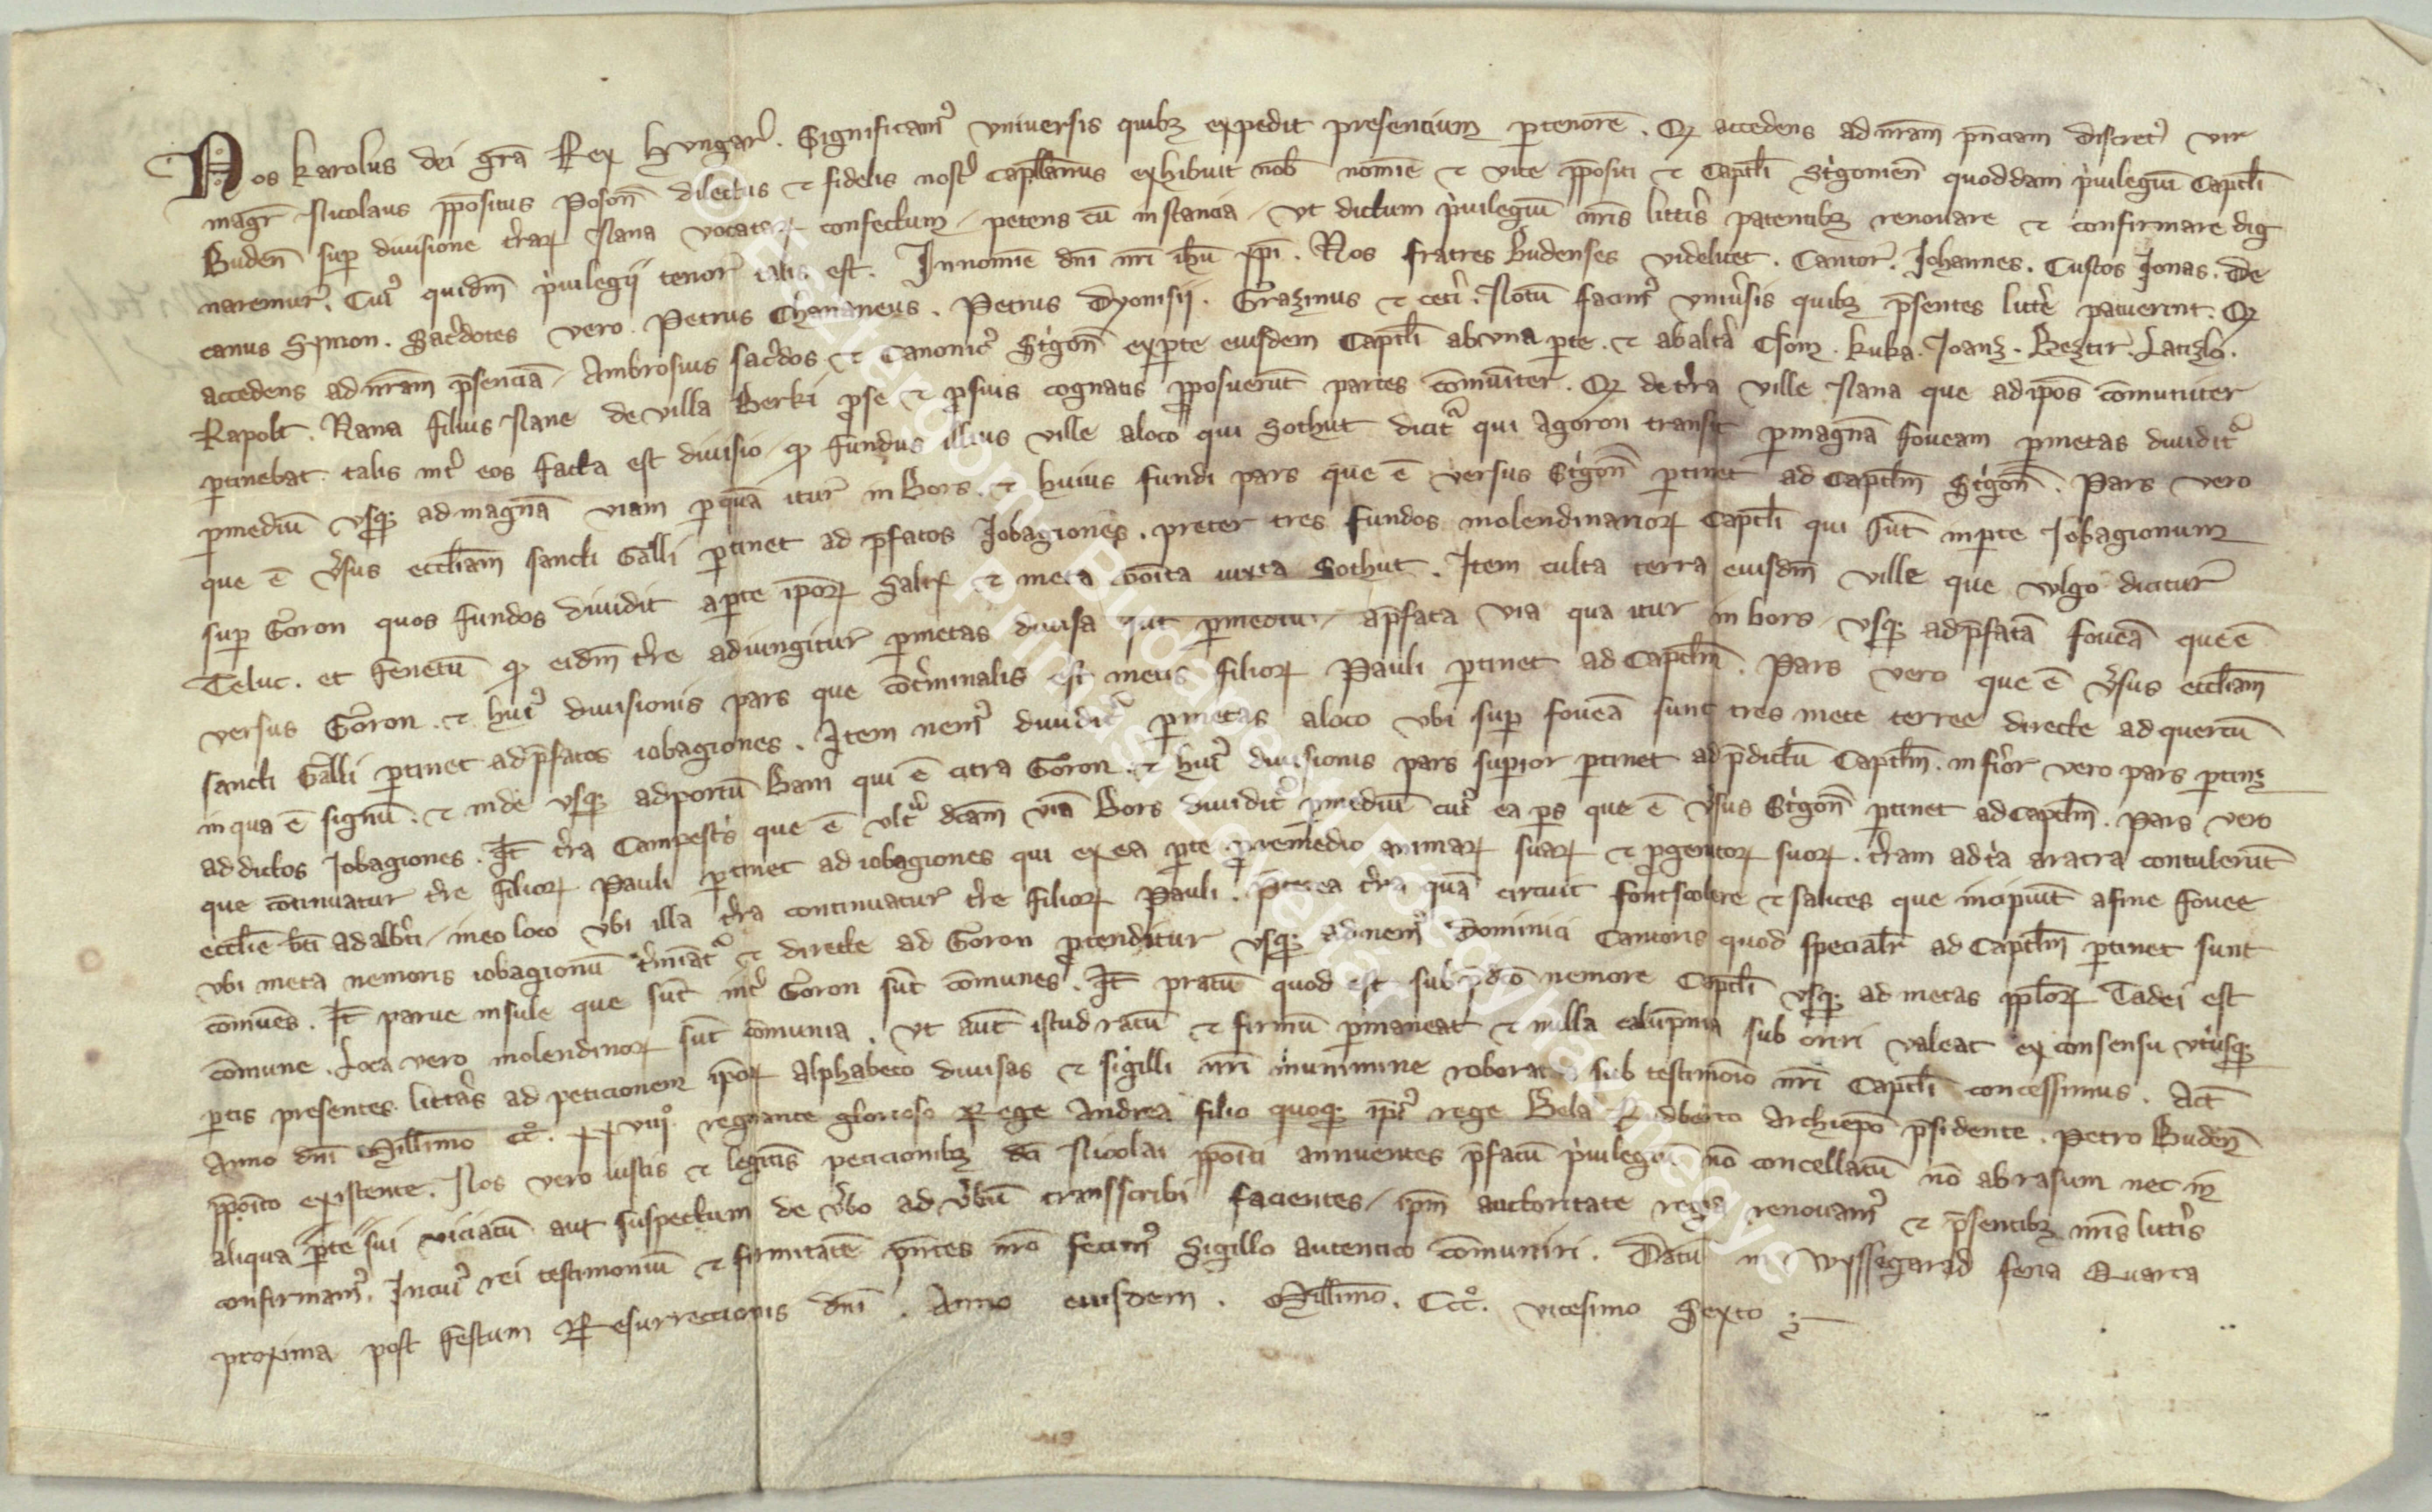 Nos karolus dei gr̄a Rex Hvngar̄. Significam9 vniversis quib3 expedit presencium p tenorē. Q3 accedens ad nr̄am pn̄ciam discret9 vir
mag̃r Nicolaus p̄positus Poson̄ dilectus ⁊ fidelis nost̃ cap̄llanus exhibuit nob̄ nomīe ⁊ vice p̄positi ⁊ Capt̄li St̾gonien̄ quoddam p͛uilegiū Capt̄li
Buden̄ sup divisione t̾raꝝ Nana vocataꝝ confectum / petens cū instancia / vt dictum p͛uilegiū nr̄is litt̾is patentib3 renouare ⁊ confirmare dig
naremur̃. Cui9 quidm̄ p͛uilegij tenor̃ talis est. In nomīe dn̄i nr̄i ih̄u xp̄i. Nos fratres Budenses videlicet. Cantor̃. Johannes. Custos Jonas. De
canus Symon. Sac̾dotes vero. Petrus Chananeus. Petrus Dyonisij. Erazmus ⁊ cet̾i. Notū facim9 vniu̾sis quib3 p̄sentes litt̾e patuerint. Q3
accedens ad nr̄am p̄senciā / Ambrosius sac̾dos ⁊ Canonic9 St̾gon̄ ex pte eiusdem Capt̄li ab vna pte. ⁊ ab alt̾a Chom. kuka. Joanz. Beztir. Latizlo.
Rapolt. Nana filius Nane de villa Berki pro se ⁊ p suis cognatis pposuerūt partes cōmūiter. Q3 de t̾ra ville Nana que ad ip̄os cōmuniter
ptinebat talis int̾ eos facta est diuisio / q̄ fundus illius ville a loco qui Sothut dicit͛ qui a Goron transit p magnā foueam p metas diuidit͛
p mediū vsq3 ad magnā viam p quā itur̃ in Bors. ⁊ huius fundi pars que ē versus St̾gon̄ ptinet ad Capt̄lm St̾gon̄. Pars vero
que ē v̾sus eccl̄iam sancti Galli ptinet ad p̄fatos Jobagiones. preter tres fundos molendinarioꝝ Capt̄li qui sūt in pte Jobagionum
sup Goron quos fundos diuidit a pte ip̄oꝝ Salix ⁊ meta po͞ita iuxta Sothut. Item culta terra eiusdm̄ ville que vlgo dicitur̃
Teluc. et fenetū q̄ eidm̄ t̾re adiungitur̃ p metas diuisa sūt p mediū / a p̄fata via qua itur in bors vsq3 ad p̄fatā foueā que ē
versus Goron. ⁊ hui9 diuisionis pars que cōt̾minalis est metis filioꝝ Pauli ptinet ad Capt̄lm. Pars vero que ē v̾sus eccl̄iam
sancti Galli ptinet ad p̄fatos iobagiones. Item nem9 diuidit͛ p metas a loco vbi sup foueā sunt tres mete terree directe ad quercū
in qua ē signū. ⁊ inde vsq3 ad portū Bam qui ē citra Goron. ⁊ hui9 diuisionis pars supior ptinet ad p̄dictū Capt̄lm. inf̾ior vero pars ptin3
ad dictos Jobagiones. It̄ t̾ra Campest̾s que ē vlt͛ dc̄am viā Bors diuidit͛ p mediū cui9 ea ps que ē v̾sus St̾gon̄ ptinet ad Capt̄lm. Pars vero
que cōtinuatur t̾re filioꝝ Pauli ptinet ad iobagiones qui ex ea pte p remedio animaꝝ suaꝝ ⁊ pgenitoꝝ suoꝝ. t̾ram ad t͛a aratra contulerūt
eccl̄ie bt̄i adalb̾ti / in eo loco vbi illa t̾ra continuatur̃ t̾re filioꝝ Pauli. P̄terea t̾ra quā circuit fontscolere ⁊ salices que incipiūt a fine fouee
vbi meta nemoris iobagionū t̾mīat͛ ⁊ directe ad Goron ptenditur vsq3 ad nem9 Dominici Cantoris quod specialr̄ ad Capt̄lm ptinet sunt
cōmūes. It̄ parue insule que sūt int̾ Goron sūt cōmunes. It̄ pratū quod est sub p̄dc̄o nemore Capt̄li vsq3 ad metas ppl̄oꝝ Tadei est
cōmune. Loca vero molendinoꝝ sūt cōmunia. Vt aūt istud ratū ⁊ firmū pmaneat ⁊ nulla calūpnia sub oriri valeat ex consensu vt͛usq3
ptis presentes litt̾as ad peticionem ip̄oꝝ Alphabeto diuisas ⁊ sigilli nr̄i munimine roboratas sub testimo͞io nr̄i Capt̄li concessimus. Act̄
Anno dn̄i Millīmo CC°. xxviij°. regnante glorioso Rege Andrea filio quoq3 ip̄i9 rege Bela Rodberto Archiep̄o p̄sidente. Petro Buden̄
p̄po͞ito existente. Nos vero iustis ⁊ legitīs peticionib3 dc̄i Nicolai p̄po͞iti annuentes p̄fatū p͛uilegiū nō concellatū nō abrasum nec in
aliqua pte sui viciatū aut suspectum de v̾bo ad v̾bū transscribi facientes / ip̄m auctoritate regia renouam9 ⁊ p̄sentib3 nr̄is litt̾is
confirmam9. In cui9 rei testimoniū ⁊ firmitatē pn̄tes nr̄o fecim9 Sigillo autentico cōmuniri. Datū in Wyssegarad feria Quarta
proxima post festum Resurreccionis dn̄i. Anno eiusdem. Millīmo. CCC°. vicesimo Sexto
© Esztergom-Budapesti Főegyházmegye
Prímási Levéltár